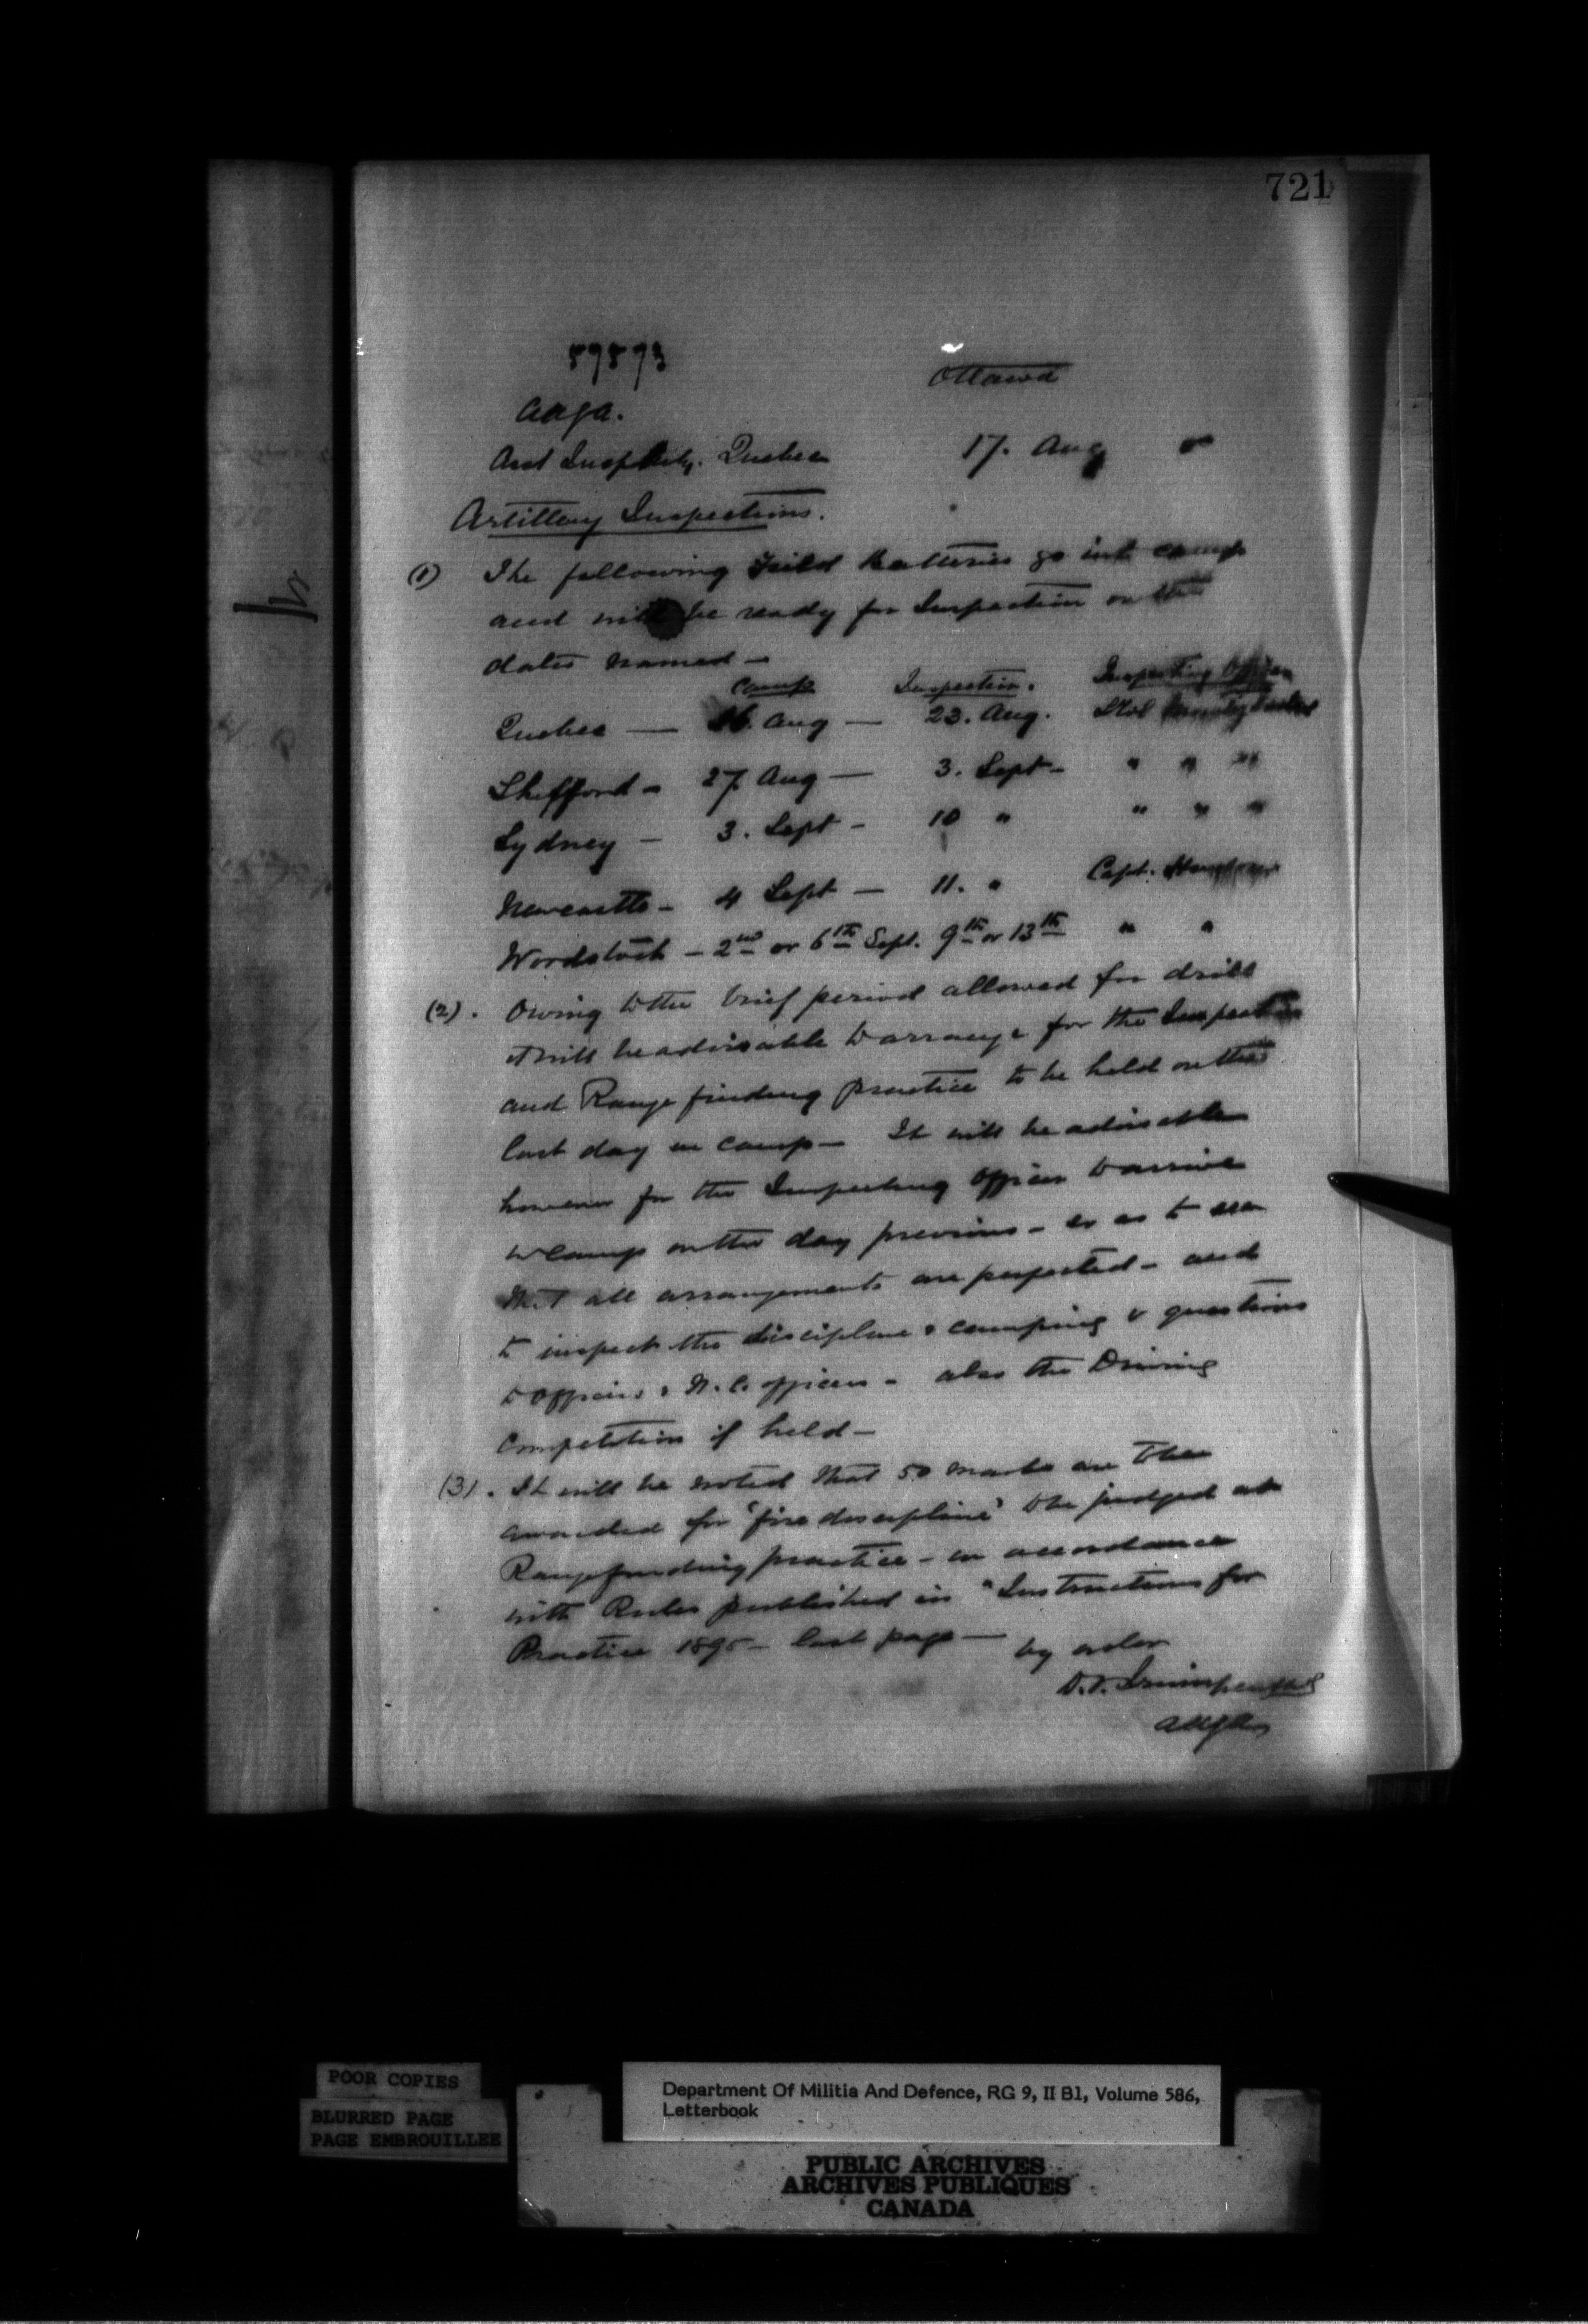 721
59593
Ottawa
AAGA.
Asst Insp Arty. Quebec 17. Aug
Artillery Inspections.
(1) The following Field Batteries go into camp
and will be ready for Inspection on the
dates named —
Camp Inspection. Inspecting Officer
Quebec — 16. Aug — 23. Aug. Lt Col
Shefford - 27. Aug — 3. Sept - " " "
Sydney — 3. Sept - 10 " " " "
Newcastle - 4 Sept — 11. " Capt.
Woodstock - 2nd or 6th Sept. 9th or 13th " "
(2). Owing to the brief period allowed for drill
it will be advisable to arrange for the Inspection
and Range finding practice to be held on the
last day in camp — It will be advisable
however for the Inspecting Officer to arrive
in camp on the day previous - so as to see
that all arrangements are perfected - and
to inspect the discipline & camping & questions
to officers & N.C. officers - also the Driving
Competition if held —
(3). It will be noted that 50 marks are to be
awarded for "fire discipline" to be judged at
Range finding practice - in accordance
with Rules published in "Instructions for
Practice 1895 - last page — by order
D.T. Irwin
AAGA
POOR COPIES
BLURRED PAGE
PAGE EMBROUILLEE
Department Of Militia And Defence, RG 9, II B1, Volume 586,
Letterbook
PUBLIC ARCHIVES
ARCHIVES PUBLIQUES
CANADA